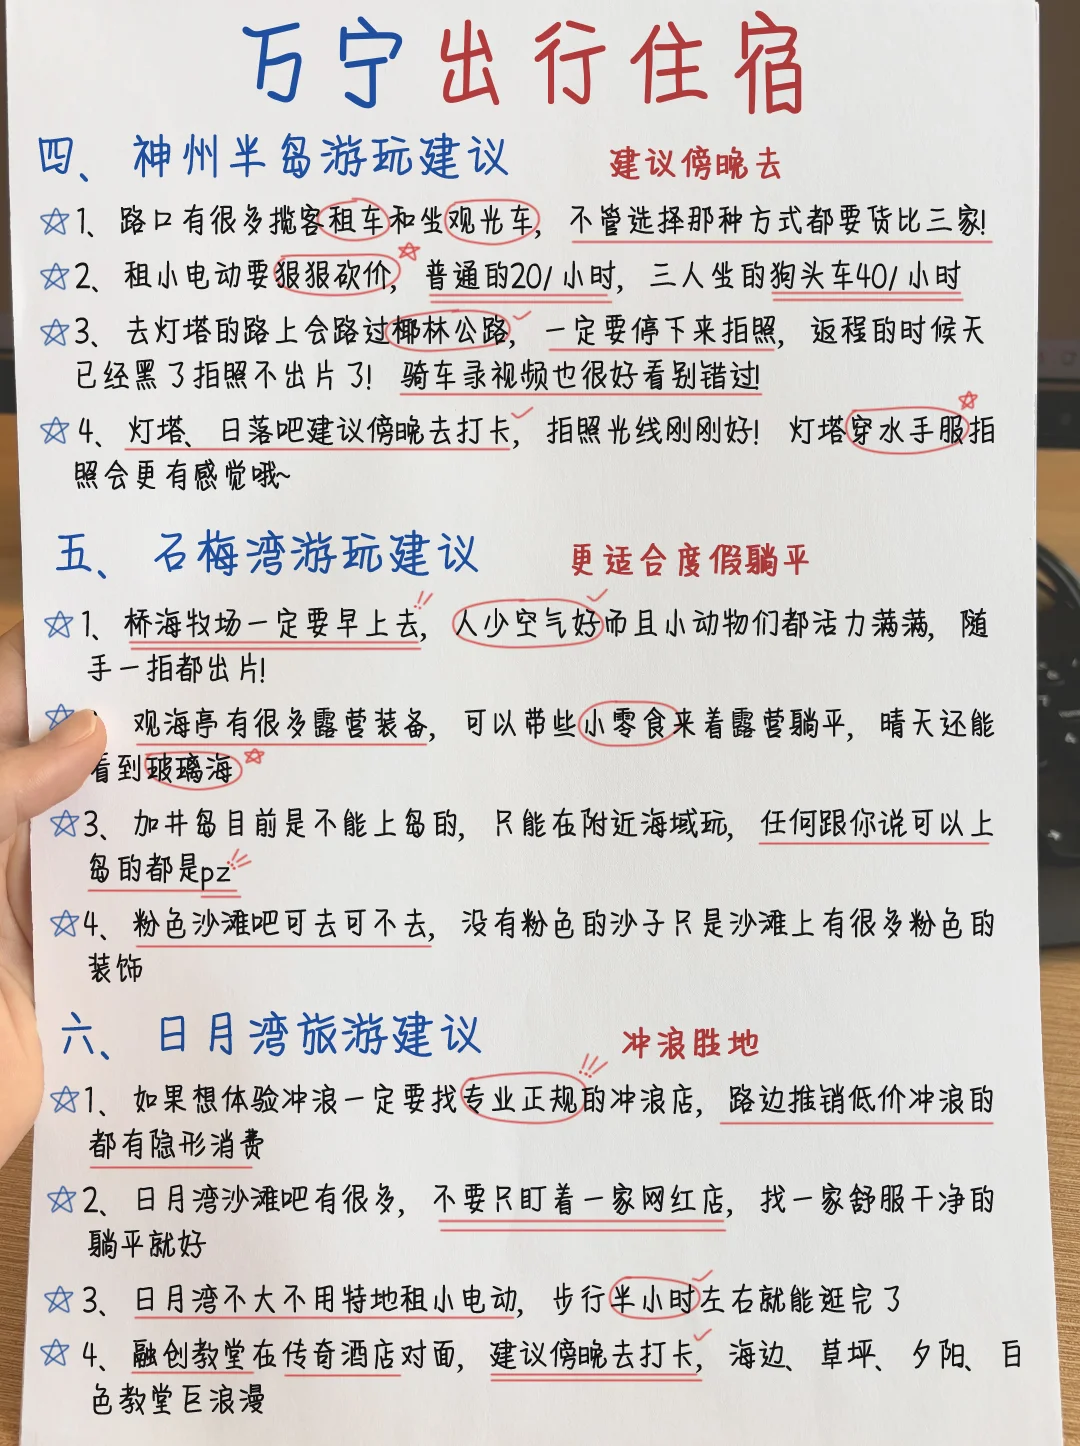 万宁出行住宿
四、神州半岛游玩建议 建议傍晚去
1、路口有很多揽客租车和坐观光车，不管选择那种方式都要货比三家!
2、租小电动要狠狠砍价，普通的20/小时，三人坐的狗头车40/小时
3、去灯塔的路上会路过椰林公路，一定要停下来拍照，返程的时候天
已经黑了拍照不出片了! 骑车录视频也很好看别错过!
4、灯塔、日落吧建议傍晚去打卡，拍照光线刚刚好! 灯塔穿水手服拍
照会更有感觉哦~
五、石梅湾游玩建议 更适合度假躺平
1、桥海牧场一定要早上去，人少空气好而且小动物们都活力满满，随
手一拍都出片!
观海亭有很多露营装备，可以带些小零食来着露营躺平，晴天还能
看到玻璃海
3、加井岛目前是不能上岛的，只能在附近海域玩，任何跟你说可以上
岛的都是pz
4、粉色沙滩吧可去可不去，没有粉色的沙子只是沙滩上有很多粉色的
装饰
六、日月湾旅游建议 冲浪胜地
1、如果想体验冲浪一定要找专业正规的冲浪店，路边推销低价冲浪的
都有隐形消费
2、日月湾沙滩吧有很多，不要只盯着一家网红店，找一家舒服干净的
躺平就好
3、日月湾不大不用特地租小电动，步行半小时左右就能逛完了
4、融创教堂在传奇酒店对面，建议傍晚去打卡，海边、草坪、夕阳、白
色教堂巨浪漫